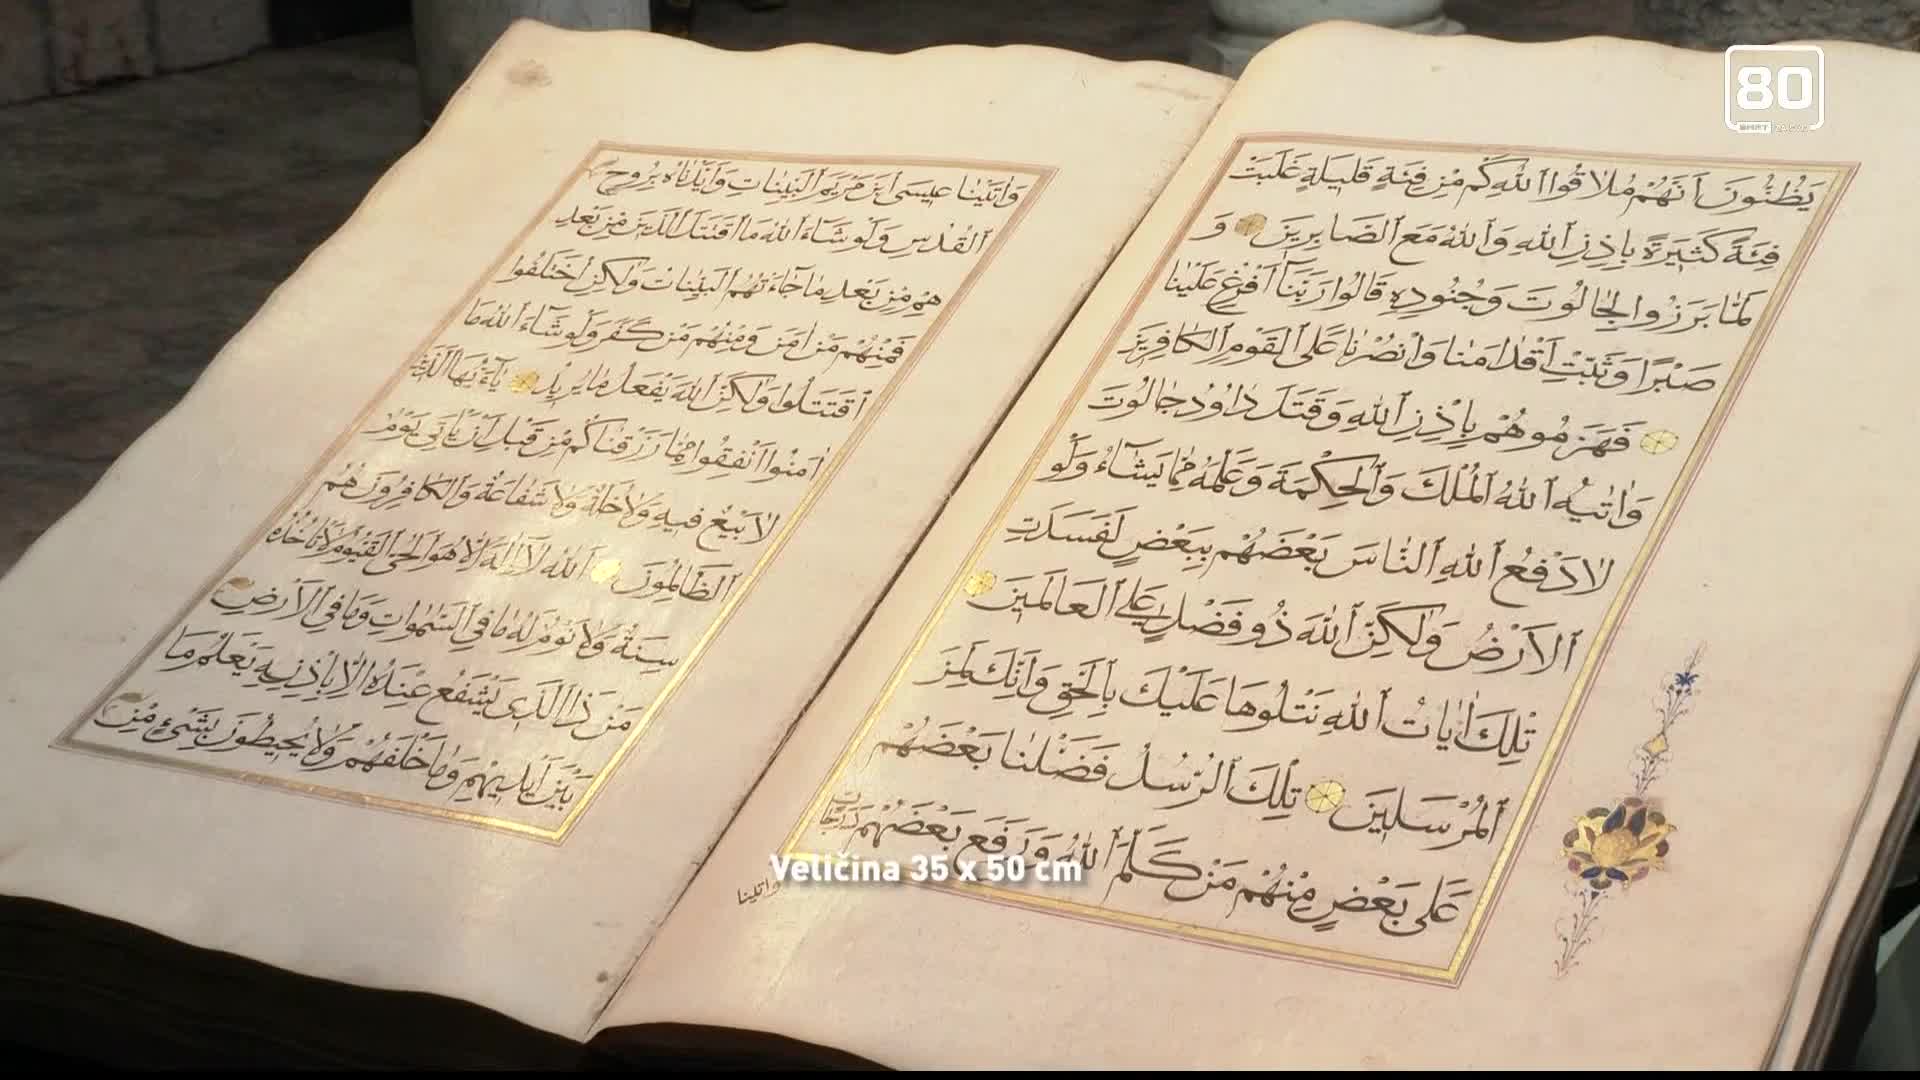 يَظُنُّونَ أَنَّهُمْ مُلَاقُوا اللّٰهِ كَمْ مِنْ فِئَةٍ قَلِيلَةٍ غَلَبَتْ
فِئَةً كَثِيرَةً بِإِذْنِ اللّٰهِ وَاللّٰهُ مَعَ الصَّابِرِينَ وَ
لَمَّا بَرَزُوا لِجَالُوتَ وَجُنُودِهِ قَالُوا رَبَّنَا أَفْرِغْ عَلَيْنَا
صَبْرًا وَثَبِّتْ أَقْدَامَنَا وَانْصُرْنَا عَلَى الْقَوْمِ الْكَافِرِينَ
فَهَزَمُوهُمْ بِإِذْنِ اللّٰهِ وَقَتَلَ دَاوُدُ جَالُوتَ
وَاٰتٰيهُ اللّٰهُ الْمُلْكَ وَالْحِكْمَةَ وَعَلَّمَهُ مِمَّا يَشَاءُ وَلَوْ
لَا دَفْعُ اللّٰهِ النَّاسَ بَعْضَهُمْ بِبَعْضٍ لَفَسَدَتِ
الْأَرْضُ وَلٰكِنَّ اللّٰهَ ذُو فَضْلٍ عَلَى الْعَالَمِينَ
تِلْكَ اٰيَاتُ اللّٰهِ نَتْلُوهَا عَلَيْكَ بِالْحَقِّ وَإِنَّكَ لَمِنَ
الْمُرْسَلِينَ تِلْكَ الرُّسُلُ فَضَّلْنَا بَعْضَهُمْ
عَلَى بَعْضٍ مِنْهُمْ مَنْ كَلَّمَ اللّٰهُ وَرَفَعَ بَعْضَهُمْ دَرَجَاتٍ
وَاٰتَيْنَا
وَاٰتَيْنَا عِيسَى ابْنَ مَرْيَمَ الْبَيِّنَاتِ وَأَيَّدْنَاهُ بِرُوحِ
الْقُدُسِ وَلَوْ شَاءَ اللّٰهُ مَا اقْتَتَلَ الَّذِينَ مِنْ بَعْدِ
هِمْ مِنْ بَعْدِ مَا جَاءَتْهُمُ الْبَيِّنَاتُ وَلٰكِنِ اخْتَلَفُوا
فَمِنْهُمْ مَنْ اٰمَنَ وَمِنْهُمْ مَنْ كَفَرَ وَلَوْ شَاءَ اللّٰهُ مَا
اقْتَتَلُوا وَلٰكِنَّ اللّٰهَ يَفْعَلُ مَا يُرِيدُ يَا أَيُّهَا الَّذِينَ
اٰمَنُوا أَنْفِقُوا مِمَّا رَزَقْنَاكُمْ مِنْ قَبْلِ أَنْ يَأْتِيَ يَوْمٌ
لَا بَيْعٌ فِيهِ وَلَا خُلَّةٌ وَلَا شَفَاعَةٌ وَالْكَافِرُونَ هُمُ
الظَّالِمُونَ اللّٰهُ لَا إِلٰهَ إِلَّا هُوَ الْحَيُّ الْقَيُّومُ لَا تَأْخُذُهُ
سِنَةٌ وَلَا نَوْمٌ لَهُ مَا فِي السَّمٰوَاتِ وَمَا فِي الْأَرْضِ
مَنْ ذَا الَّذِي يَشْفَعُ عِنْدَهُ إِلَّا بِإِذْنِهِ يَعْلَمُ مَا
بَيْنَ أَيْدِيهِمْ وَمَا خَلْفَهُمْ وَلَا يُحِيطُونَ بِشَيْءٍ مِنْ
Veličina 35 x 50 cm
80